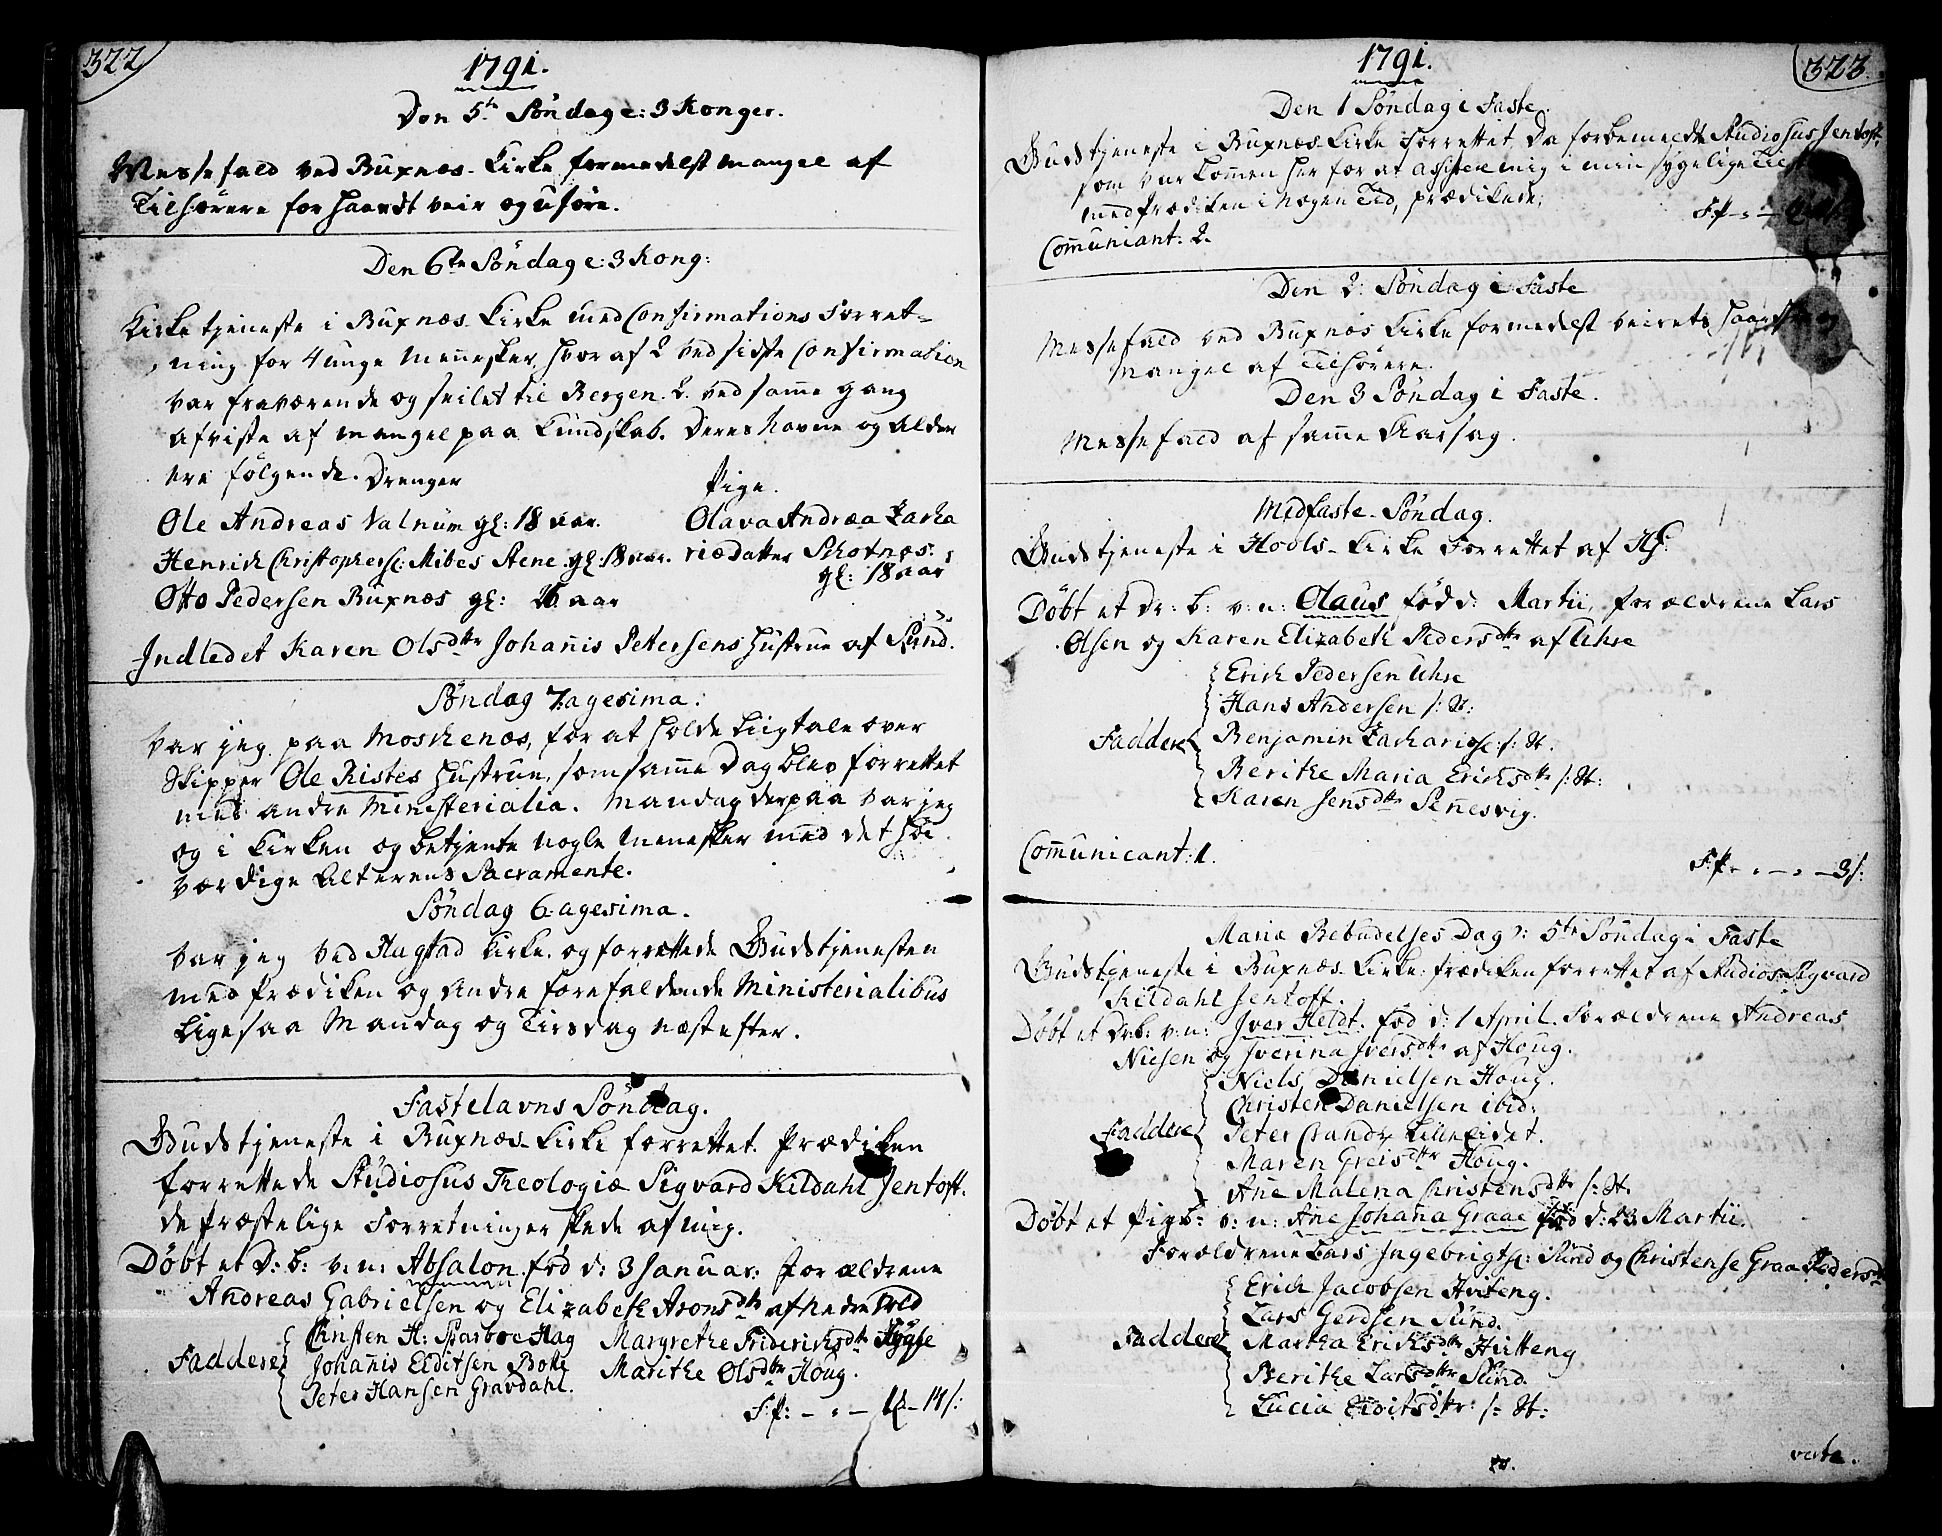 322
1791.
Den 5te Söndag e: 3 Konger.
Messefald ved Buxnæs Kirke formedelst Mangel af
Tilhørere for haardt veir og uføre.
Den 6te Söndag e: 3 Kong:
Kirketjeneste i Buxnæs Kirke med Confirmations Forret-
ning for 4 unge Mennesker, hvor af 2 ved sidste Confirmation
var fraværende og seilet til Bergen. 2 ved samme gang
afviste af Mangel paa Kundskab. Deres Navne og Alder
ere følgende. Drenger
Pige.
Ole Andreas Valnum gl: 18 aar.
Olava Andræa Zacha
Henrich Christophersc: Mibes Stene gl: 18 aar.
riædatter Skotnæs:
gl: 18 aar
Otto Pedersen Buxnæs gl: 16 aar
Indledet Karen Olsdttr Johannis Petersens Hustrue af Sund.
Söndag 7agesima:
Var jeg paa Moskenæs, for at holde Liigtale over
Skipper Ole Ristes Hustrue, som samme Dag blev forrettet
med andre Ministerialia. Mandag derpaa var jeg
og i Kirken og betjente nogle Mennesker med det Høi
værdige Alterens Sacramente.
Söndag 6agesima.
Var jeg ved Hagstad Kirke og forrettede Gudstjenesten
med Prædiken og Andre forefaldende Ministerialibus
Ligesaa Mandag og Tirsdag næst efter.
Fastelavns Söndag.
Gudstjeneste i Buxnæs Kirke forrettet. Prædiken
forrettede Studiosus Theologiæ Sigvard Kildahl Jentoft.
de Præstelige Forretninger skede af mig.
Döbt et D: b: v: n: Absalon fød d: 3 Januar: Forældrene
Andreas Gabrielsen og Elizabeth Aronsdtr af Nedre Told
Christen H: Sparboe Hag Margrethe Fridrichsdtr Hygge
Faddere Johannis Elditsen Bohe Marithe Olsdttr Houg.
Peter Hansen Gravdahl.
F:P: - „ - 1# - 14 s:
323.
1791.
Den 1 Söndag i Faste.
Gudstjeneste i Buxnæs Kirke Forrettet, Da forbemeldte Studiosus Jentoft
som var kommen her for at assistere mig i min sygelige
med Prædiken i Nogen Tid, prædikede;
F:P - „ -
Communicant: 2.
Den 2: Söndag i Faste
Messefald ved Buxnæs Kirke formedelst veirets haardhed og
Mangel af Tilhørere.
Den 3 Söndag i Faste.
Messefald af samme Aarsag.
Midfaste-Söndag.
Gudstjeneste i Hools-Kirke Forrettet af
Döbt et Dr: b: v: n: Olaus fød d: Martii, forældrene Lars
Olsen og Karen Elizabeth Pedersdtr af Uhre
Erich Pedersen Uhre
Hans Andersen s: St:
Faddere Benjamin Zacharisc: s: St.
Berithe Maria Erichsdtr s: St:
Karen Jensdtr Pennesvig.
Communicant: 1.
F:P. - „ - „ - 3 s:
Mariæ Bebudelses Dag ɔ: 5te Söndag i Faste
Gudstjeneste i Buxnæs Kirke: Prædiken forrettet af Studios: Sigvard
Kildahl Jentoft.
Döbt et Drb: v: n: Iver Heldt. fød d: 1 April. Forældrene Andreas
Nielsen og Iverina Iversdtr af Houg.
Niels Danielsen Houg.
Christen Danielsen ibid:
Faddere Peter Lilleeidet.
Maren Greisdttr Houg.
Ane Malena Christensdtr s: St.
Döbt et Pigeb: v: n: Ane Johanna Graae fød d: 23 Martii.
Forældrene Lars Ingebrigtsc: Sund og Christense Graa Pedersdtr
Erich Jacobsen Hutteng.
Lars Gerdsen Sund.
Faddere Martha Erichsdtr Hutteng
Berithe Larsdttr Sund.
Lucia Elditsdtr: s: St:
verte.